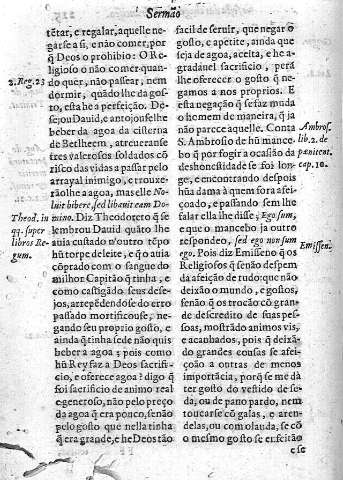 Sermão
tẽtar, e regalar, aquelle ne-
gar se a si, e não comer, por
q̃ Deos o prohibio: O Re-
ligioso o não comer quan-
do quer, não passear, nem
dormir, quãdo lhe dá gos-
to, esta he a perfeição. De-
sejou Dauid, e antojouselhe
beber da agoa da cisterna
de Bethleem, atreueranse
tres valerosos soldados cõ
risco das vidas a passar pelo
arrayal inimigo, e trouxe-
rão lhe a agoa, mas elle No
luit bibere, sed libauit eam Do-
mino. Diz Theodoreto q̃ se
lembrou Dauid quáto lhe
auia custado n'outro tẽpo
hũ torpe deleite, e q̃ o auia
cõprado com o sangue do
milhor Capitão q̃ tinha, e
como castigado seus dese-
jos, arrepẽdẽdose do erro
passado mortificouse, ne-
gando seu proprio gosto, e
ainda q̃ tinha sede não quis
beber a agoa; pois como
hũ Rey faz a Deos sacrifi-
cio, e oferece agoa? digo q̃
foi sacrificio de animo real
e generoso, não pelo preço
da agoa q̃ era pouco, senão
pelo gosto que nella tinha
q̃ era grande, e he Deos tão
2. Reg. 23
Theod. in
qq. super
libros Re-
gum.
facil de seruir, que negar o
gosto, e apetite, ainda que
seja de agoa, aceita, e he a-
gradauel sacrificio, perá
lhe oferecer o gosto q̃ ne-
gamos a nos proprios. E
esta negação q̃ se faz muda
o homem de maneira, q̃ ja
não parece aquelle. Conta
S. Ambrosio de hũ mance-
bo q̃ por fogir a ocasião da
deshonestidade se foi lon-
ge, e encontrando despois
hũa dama à quem fora afei-
çoado, e passando sem lhe
falar ella lhe disse; Ego sum,
e que o mancebo ja outro
respondeo, sed ego non sum
ego. Pois diz Emisseno q̃ os
Religiosos q̃ senão despem
da afeição de tudo: que não
deixão o mundo, e gostos,
senão q̃ os trocão cõ gran-
de descredito de suas pes-
soas, mostrãdo animos vis,
e acanhados, pois q̃ deixã-
do grandes cousas se afei-
ção a outras de menos
importãcia, porq̃ se me dá
ter gosto do vestido de se-
da, ou de pano pardo, nem
toucarse cõ galas, e aren-
delas, ou com olanda, se cõ
o mesmo gosto se enfeitão
Ambros.
lib. 2. de
pænitent.
cap. 10.
Emissen.
e se